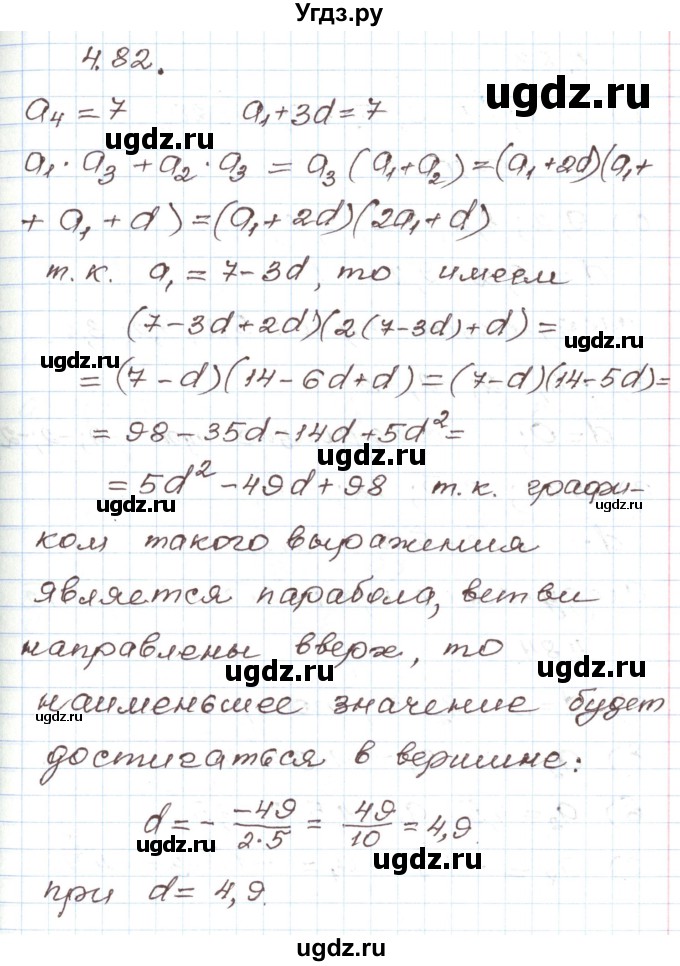 Угдз.ру
4.82.
ugdz.ru
a₄ = 7 a₁+3d=7
ugdz.ru
a₁·a₃+a₂·a₃ = a₃(a₁+a₂)=(a₁+2d)(a₁+
+a₁+d)=(a₁+2d)(2a₁+d)
т.к. a₁=7-3d, то имеем
(7-3d+2d)(2(7-3d)+d)=
ugdz.ru
ugdz.ru
=(7-d)(14-6d+d)=(7-d)(14-5d)=
=98-35d-14d+5d²=
ugdz.ru
=5d²-49d+98 т.к. графи-
ugdz.ru
ком такого выражения
является парабола, ветви
направлены вверх, то
ugdz.ru ugdz.ru
наименьшее значение будет
ugdz.ru
достигаться в вершине:
d=- -49/2·5 = 49/10 =4,9
ugdz.ru
ugdz.ru
при d= 4,9.
ugdz.ru